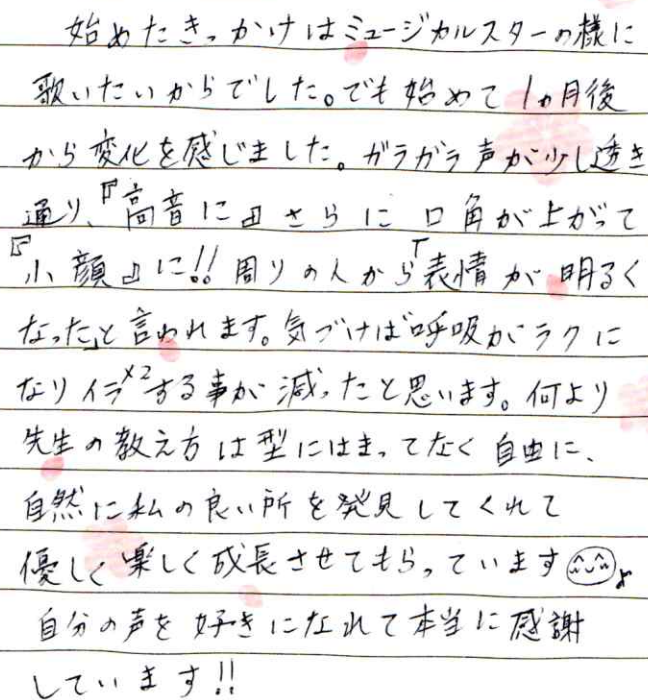 始めたきっかけはミュージカルスターの様に
歌いたいからでした。でも始めて1ヵ月後
から変化を感じました。ガラガラ声が少し透き
通り、『高音に』さらに 口角が上がって
『小顔』に!! 周りの人から「表情が明るく
なった」と言われます。気づけば呼吸がラクに
なりイラ×2する事が減ったと思います。何より
先生の教え方は型にはまってなく自由に、
自然に私の良い所を発見してくれて
優しく楽しく成長させてもらっています
自分の声を好きになれて本当に感謝
しています!!